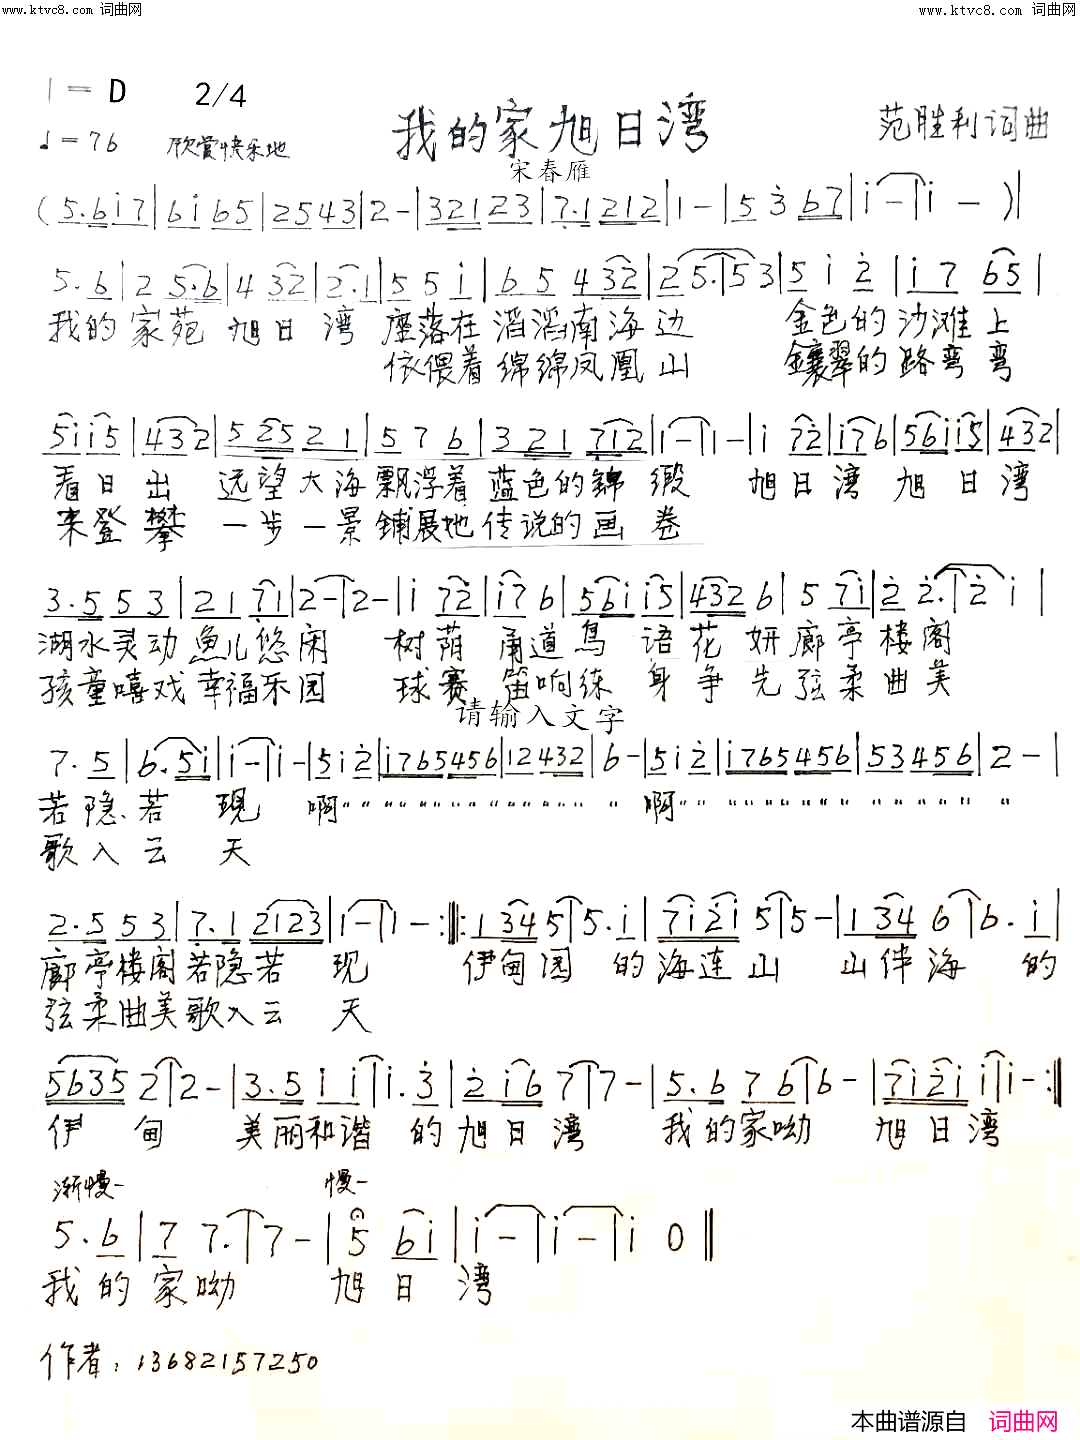 www.ktvc8.com 词曲网 www.ktvc8.com 词曲网
1=D 2/4
♩=76 欣赏快乐地
我的家旭日湾
范胜利词曲
宋春雁
(5.6i7|6i65|2543|2-|32123|7.1212|1-|5367|i-|i-)|
5.6|25.6|432|2.1|55i|65432|25.|53|5i2|i765|
我的家苑旭日湾座落在滔滔南海边 金色的沙滩上
依偎着绵绵凤凰山 鑲翠的路弯弯
5ii5|432|52521|576|321712|1-|1-|i72|i76|56ii5|432|
看日出 远望大海飘浮着蓝色的錦缎 旭日湾旭日湾
来登攀 一步一景铺展地传说的画卷
3.553|2171|2-|2-|i72|i76|56ii5|4326|57i|22.|2i|
湖水灵动鱼儿悠闲 树荫甬道鸟语花妍廊亭楼阁
孩童嘻戏幸福乐园 球赛笛响练身争先弦柔曲美
请输入文字
7.5|6.5i|i-|i-|5i2|i765456|12432|6-|5i2|i765456|53456|2-|
若隐若现 啊"""""""""""" 啊""""""""""""
歌入云天
2.553|7.12123|1-|1-:‖:1345|5.i|7i2i5|5-|1346|6.i|
廊亭楼阁若隐若现 伊甸园的海连山 山伴海的
弦柔曲美歌入云天
56352|2-|3.5ii|i.3|2i67|7-|5.676|6-|7i2ii|i-:‖
伊甸 美丽和谐的旭日湾 我的家呦 旭日湾
渐慢- 慢-
5.6|77.|7-|56i|i-|i-|i0‖
我的家呦 旭日湾
作者：13682157250
本曲谱源自 词曲网